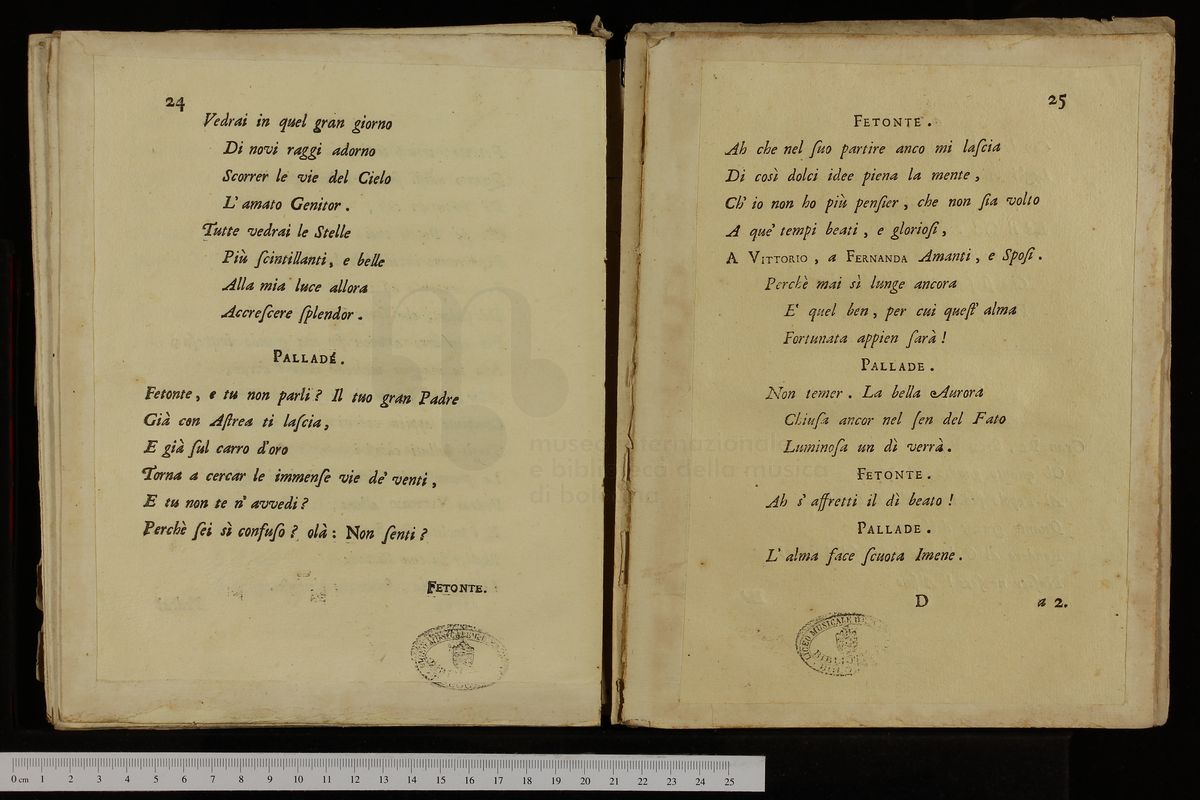 24
Vedrai in quel gran giorno
Di novi raggi adorno
Scorrer le vie del Cielo
L' amato Genitor .
Tutte vedrai le Stelle
Più ſcintillanti , e belle
Alla mia luce allora
Accreſcere ſplendor .
PALLADE .
Fetonte , e tu non parli ? Il tuo gran Padre
Già con Aſtrea ti laſcia ,
E già ſul carro d'oro
Torna a cercar le immenſe vie de' venti ,
E tu non te n' avvedi ?
Perchè ſei sì confuſo ? olà : Non ſenti ?
FETONTE.
25
FETONTE .
Ah che nel ſuo partire anco mi laſcia
Di così dolci idee piena la mente ,
Ch' io non ho più penſier , che non ſia volto
A que' tempi beati , e glorioſi ,
A VITTORIO , a FERNANDA Amanti , e Spoſi .
Perchè mai sì lunge ancora
E' quel ben , per cui queſt' alma
Fortunata appien ſarà !
PALLADE .
Non temer . La bella Aurora
Chiuſa ancor nel ſen del Fato
Luminoſa un dì verrà .
FETONTE .
Ah s' affretti il dì beato !
PALLADE .
L' alma face ſcuota Imene .
D
a 2.
LICEO MUSICALE
museo internazionale
e biblioteca della musica
di bologna
0 cm 1 2 3 4 5 6 7 8 9 10 11 12 13 14 15 16 17 18 19 20 21 22 23 24 25